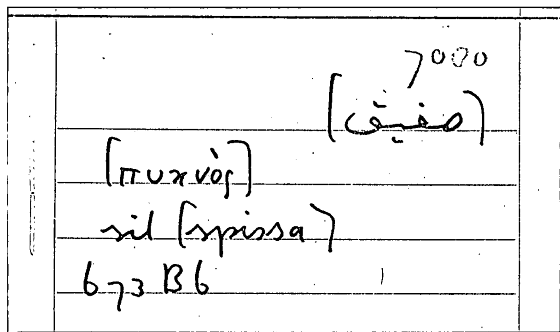 7000
[صفيق]
[πυκνὸς]
sil [spissa]
673 B6